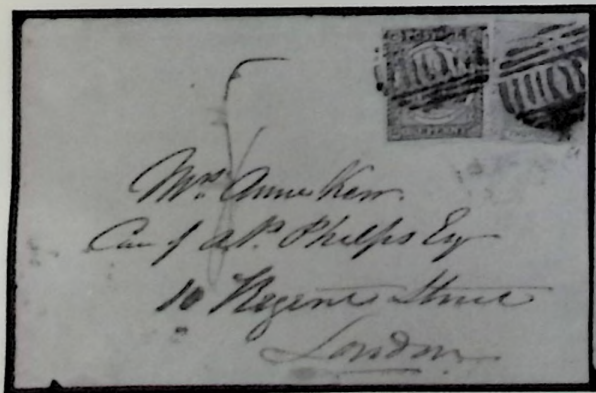 POSTAGE
Mrs. Anne Kerr.
Care of A. P. Phelps Esq
10 Regent Street
London